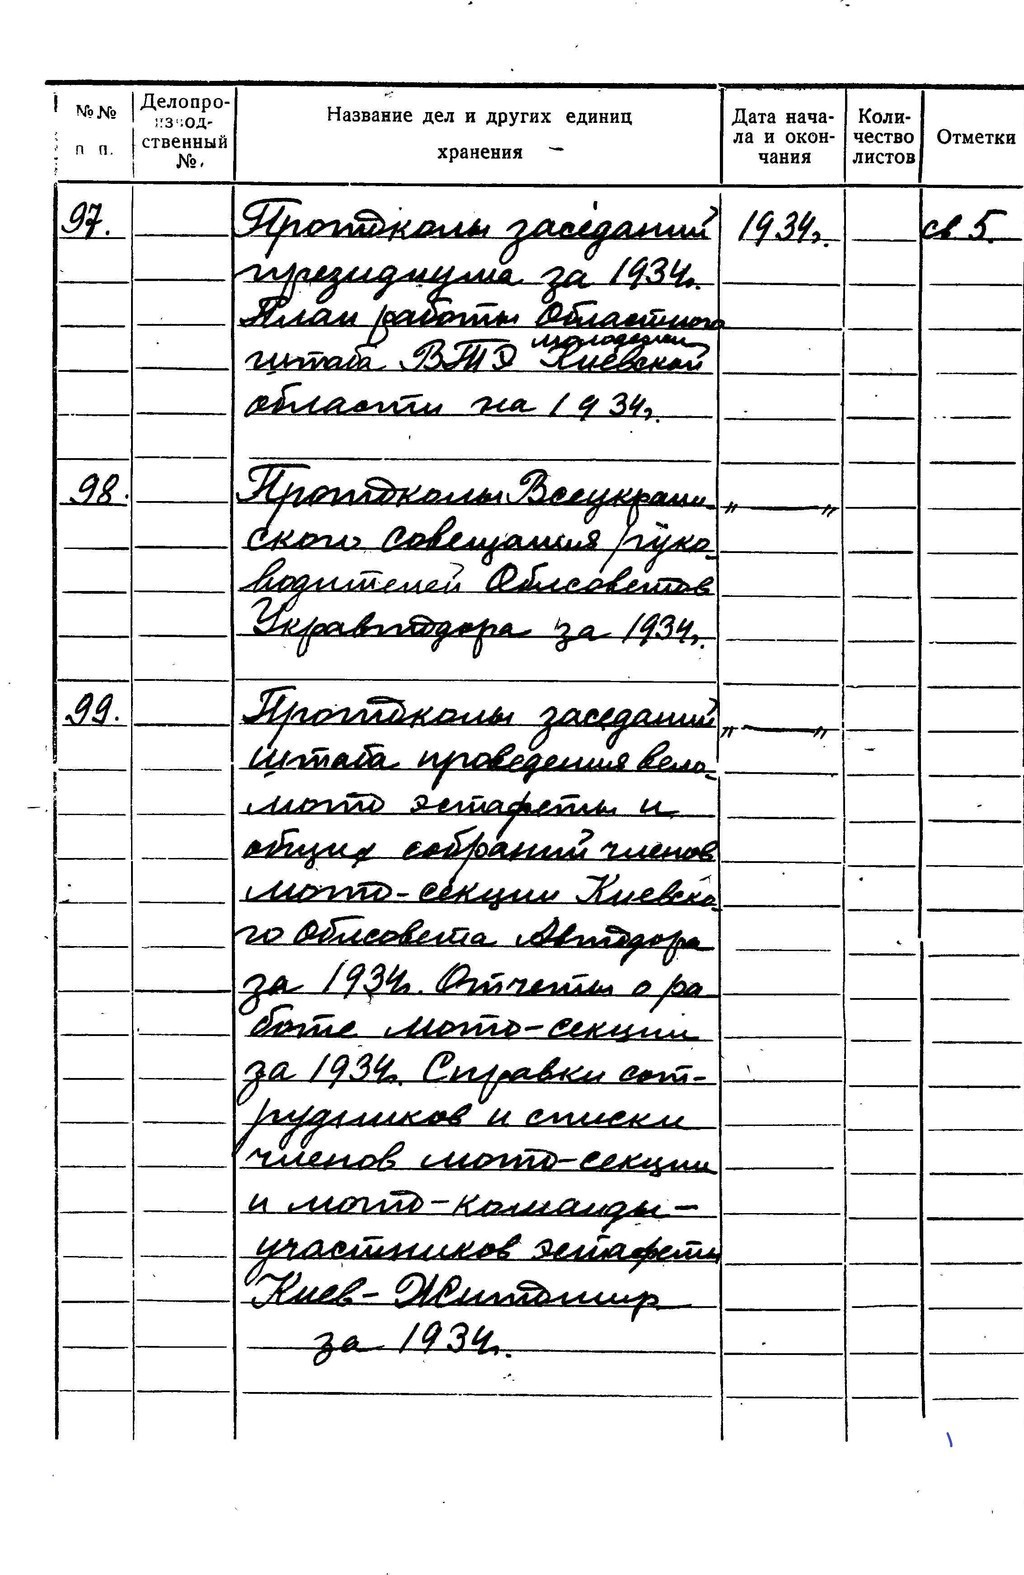 №№ п п. Делопроизводственный №. Название дел и других единиц хранения Дата начала и окончания Количество листов Отметки
97. Протоколы заседаний 1934г. св 5.
президиума за 1934г.
План работы Областного
молодежи
штаба ВТЭ Киевской
области на 1934г.
98. Протоколы Всеукраин- "—"
ского совещания руко-
водителей Облсоветов
Укравтодора за 1934г.
99. Протоколы заседаний "—"
штаба проведения вело-
мото эстафеты и
общих собраний членов
мото-секции Киевско-
го Облсовета Автодора
за 1934г. Отчеты о ра-
боте мото-секции
за 1934г. Справки сот-
рудников и списки
членов мото-секции
и мото-команды-
участников эстафеты
Киев-Житомир
за 1934г.